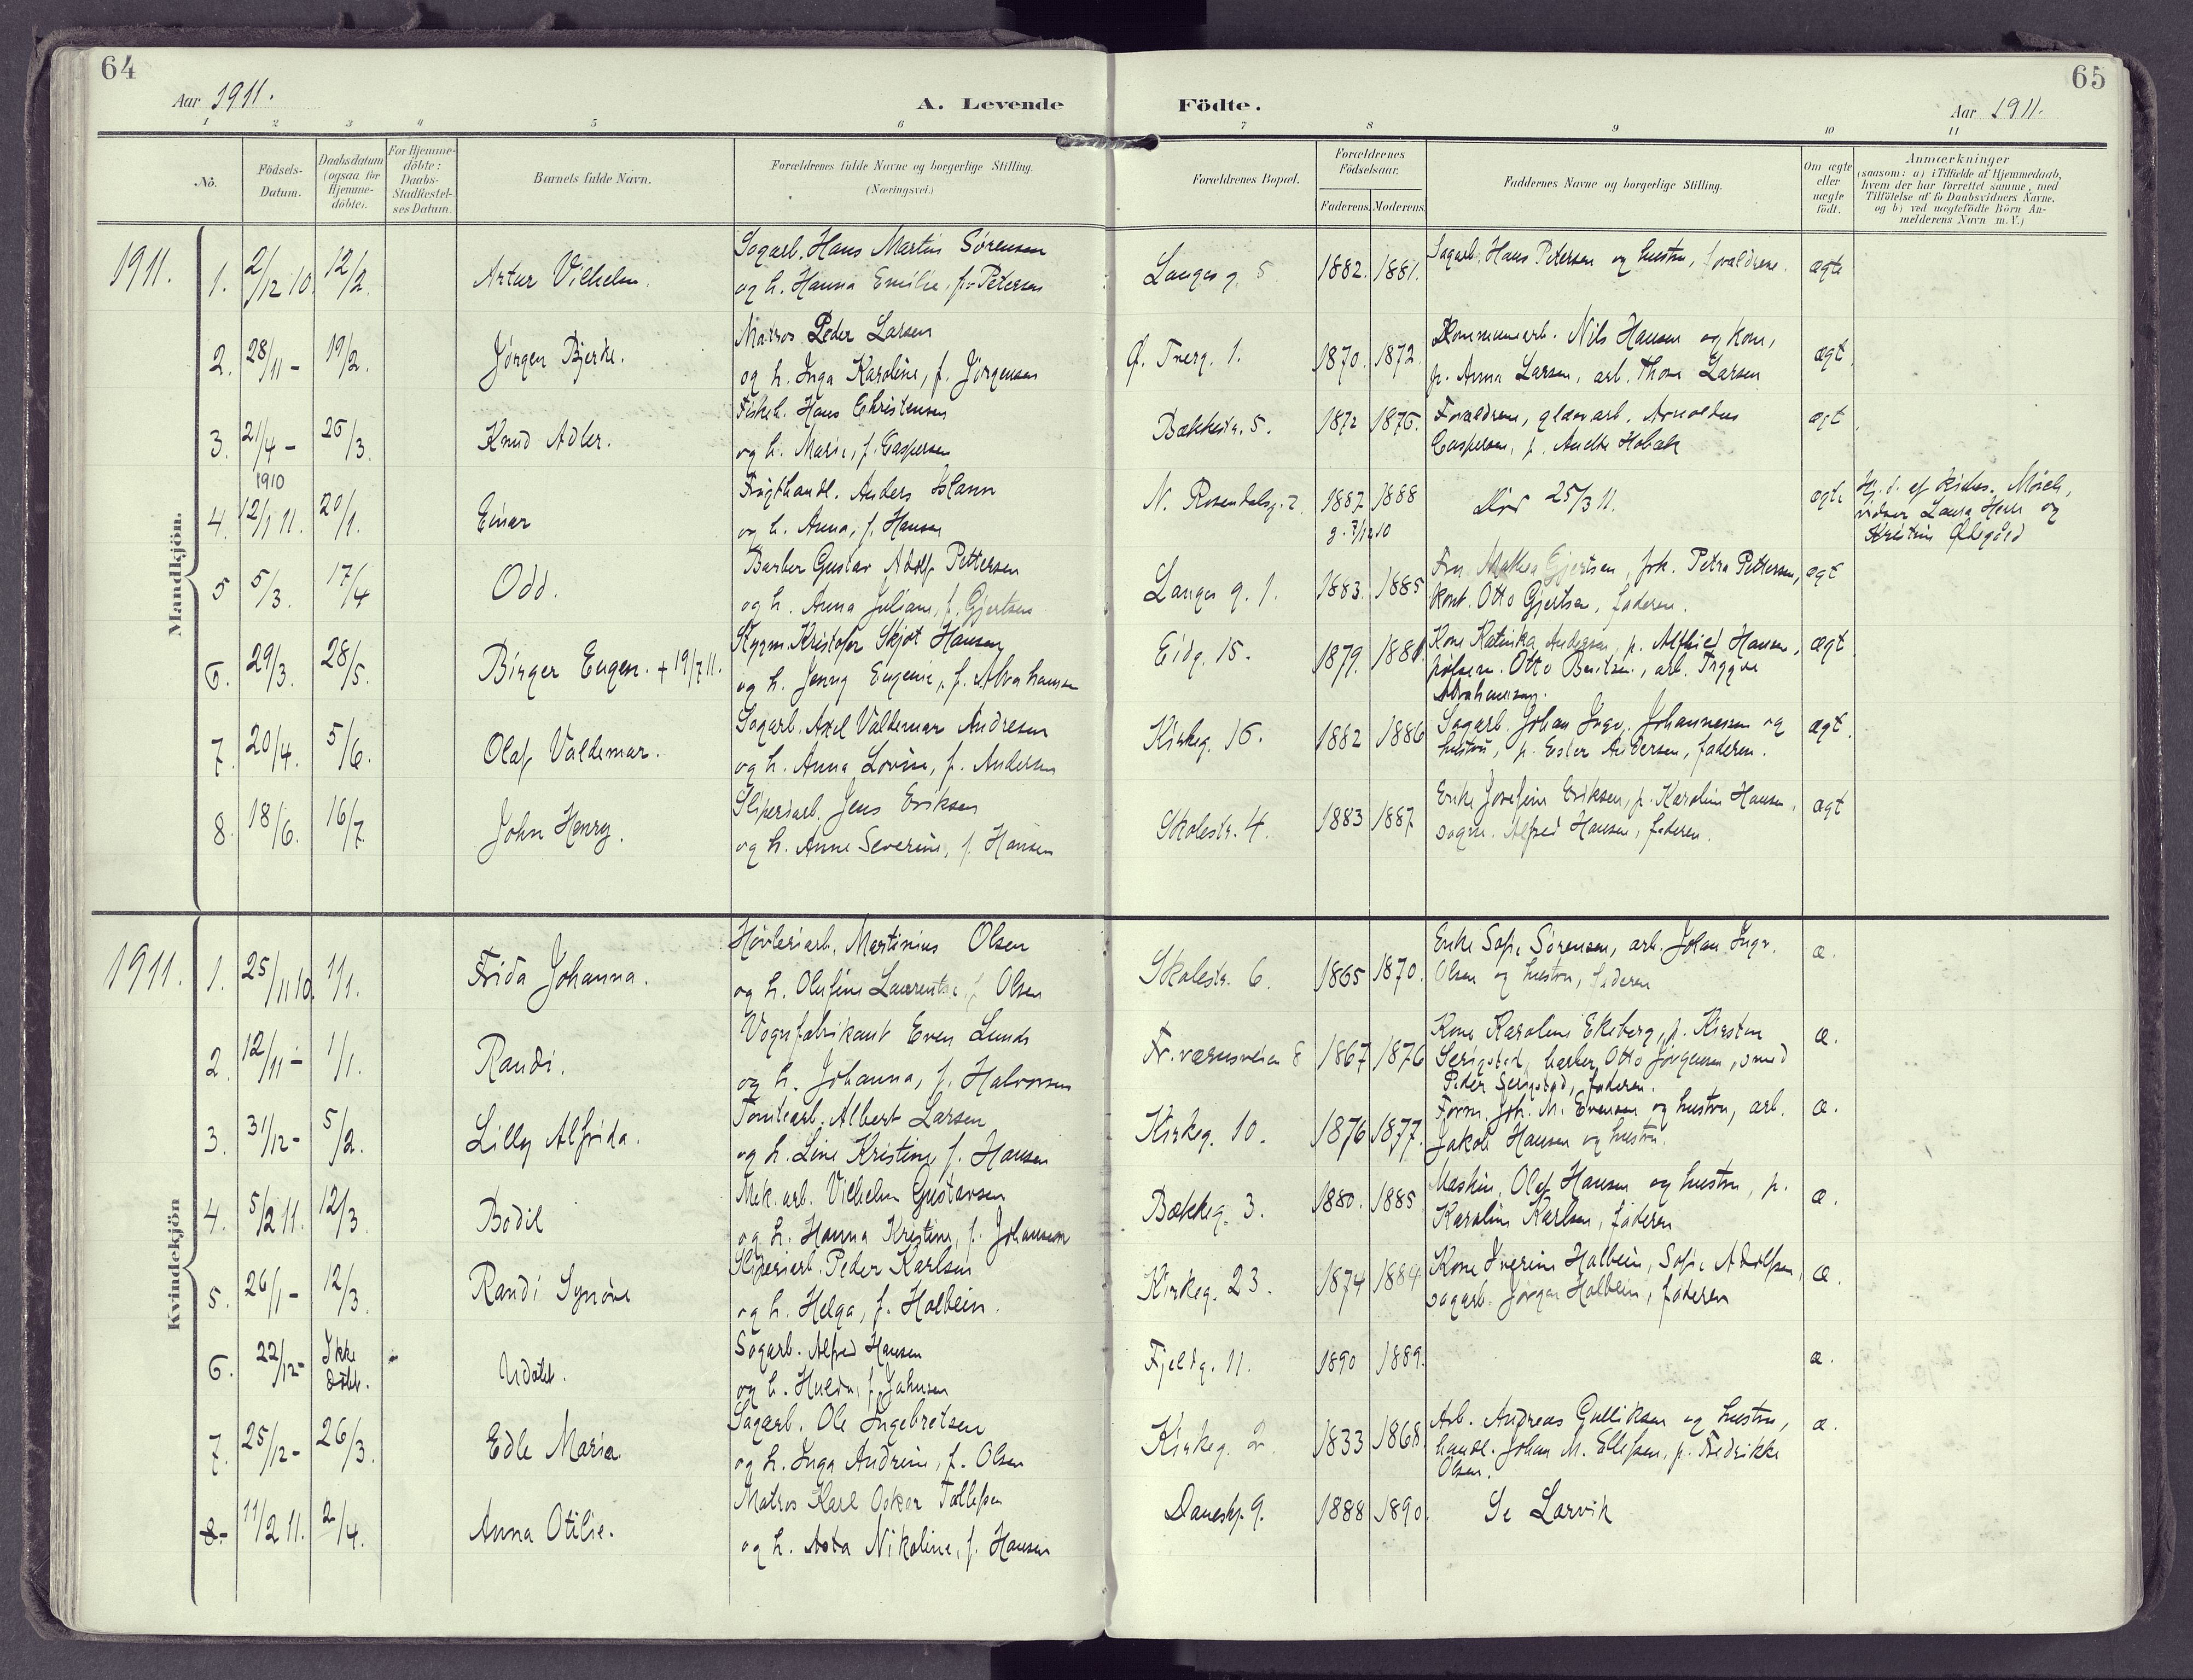 64
65
Aar 1911.
A. Levende
Födte.
Aar 1911.
1 2 3 4 5 6 7 8 9 10 11
No.
Födsels-
Datum.
Daabsdatum
(ogsaa for
Hjemme-
döbte).
For Hjemme-
döbte:
Daabs-
Stadfæstel-
ses Datum.
Barnets fulde Navn.
Forældrenes fulde Navne og borgerlige Stilling.
(Næringsvei.)
Forældrenes Bopæl.
Forældrenes
Födselsaar.
Faderens. Moderens.
Faddernes Navne og borgerlige Stilling.
Om ægte
eller
uægte
födt.
Anmærkninger
(saasom: a) i Tilfælde af Hjemmedaab,
hvem der har forrettet samme, med
Tilföielse af to Daabsvidners Navne,
og b) ved uægtefödte Börn An-
melderens Navn m. V.)
Mandkjön.
1911. 1. 2/12 10. 12/2. Artur Vilhelm.
Sagarb. Hans Martin Sörensen
og h. Hanna Emilie, f. Petersen
Langes g. 5 1882. 1881.
Sagarb. Hans Petersen og hustru, forældrene. ægte
2. 28/11 - 19/2. Jörgen Bjerke.
Matros Peder Larsen
og h. Inga Karoline, f. Jörgensen
Ö. Tverg. 1. 1870. 1872.
Kommunearb. Nils Hansen og kone,
p. Anna Larsen, arb. Thore Larsen
ægt.
3. 21/4 - 26/3. Knud Adler.
1910
Fiskeh. Hans Christensen
og h. Marie, f. Caspersen
Bækkestr. 5. 1872 1876.
Forældrene, glasarb. Arnoldus
Caspersen, p.
ægt
4. 12/1 11. 20/1. Einar
Frugthandl. Anders
og h. Anna, f. Hansen
N. Rosendalsg. 2 1887 1888
g. 7/12 10
Död 25/3 11.
ægte
Hj. d. af
vidner Laura
Kristine
5 5/3. 17/4 Odd.
Barber Gustav Adolf Pettersen
og h. Anna Juliane, f. Gjertsen
Langes g. 1. 1883. 1885
Fru Mathea Gjertsen, frk. Petra Pettersen,
kont. Otto Gjertsen, faderen.
ægt
6. 29/3. 28/5. Birger Eugen. + 19/7 11.
Styrm. Kristofer Skjöt Hansen
og h. Jenny Eugenie, f. Abrahamsen
Eidg. 15. 1879. 1881.
Kone Katinka Andersen, p. Alfhild Hansen,
Otto , arb. Trygve
Abrahamsen.
ægt
7. 20/4. 5/6. Olaf Valdemar.
Sagarb. Axel Valdemar Andresen
og h. Anna Lovise, f. Andersen
Kirkeg. 16. 1882 1886
Sagarb. Johan Ingv. Johannessen og
hustru, p. Ester Andersen, faderen.
ægt.
8. 18/6. 16/7. John Henry.
Sliperiarb. Jens Eriksen
og h. Anne Severine, f. Hansen
Skolestr. 4. 1883 1887
Enke Josefine Eriksen, p. Karoline Hansen,
Alfred Hansen, faderen.
ægt
Kvindekjön
1911. 1. 25/11 10. 1/1. Frida Johanna.
Hövleriarb. Martinius Olsen
og h. Olufine Laurentse, f. Olsen
Skolestr. 6. 1865 1870.
Enke Sofie Sörensen, arb. Johan Ingv.
Olsen og hustru, faderen
æ.
2. 12/11 - 1/1. Randi.
Vognfabrikant Even Lunde
og h. Johanna, f. Halvorsen
Fr.værnsveien 8 1867 1876
Kone Karoline Ekeberg, p. Kirsten
Serigstad, barber Otto Jörgensen, smed
Peder Serigstad, faderen.
æ.
3. 31/12 - 5/2. Lilly Alfrida.
Tomtearb. Albert Larsen
og h. Line Kristine, f. Hansen
Kirkeg. 10. 1876 1877.
Form. Joh. M. Evensen og hustru, arb.
Jakob Hansen og hustru.
æ.
4. 5/2 11. 12/3. Bodil
Mek. arb. Vilhelm Gustavsen
og h. Hanna Kristine, f. Johansen
Bækkeg. 3. 1880. 1885.
Maskin. Olaf Hansen og hustru, p.
Karoline Karlsen, faderen
æ.
5. 26/1 - 12/3. Randi Synöve
Sliperiarb. Peder Karlsen
og h. Helga, f. Holbein.
Kirkeg. 23. 1874 1884
Kone Iverine Holbein, Sofie Adolfsen,
sagarb. Jörgen Holbein, faderen
æ.
6. 22/12 - Ikke
döbt.
Udöbt.
Sagarb. Alfred Hansen
og h. Hulda, f. Johnsen
Fjeldg. 11. 1890 1889.
æ.
7. 25/12 - 26/3. Edle Maria
Sagarb. Ole Ingebretsen
og h. Inga Andrine, f. Olsen
Kirkeg. 2 1833 1868.
Arb. Andreas Gulliksen og hustru,
handl. Johan M. Ellefsen, p. Fredrikke
Olsen.
æ.
8. 11/2 11. 2/4. Anna Otilie.
Matros Karl Oskar Tollefsen
og h. Asta Nikoline, f. Hansen
Daneskj. 9. 1888 1890.
Se Larvik